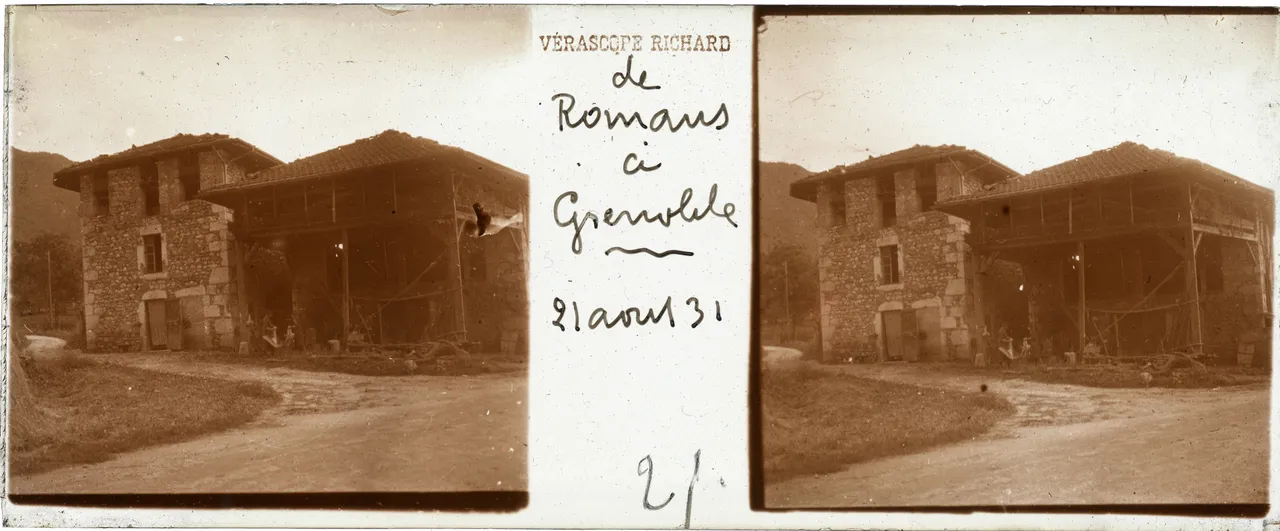 VÉRASCOPE RICHARD
de
Romans
à
Grenoble
21 aout 31
21